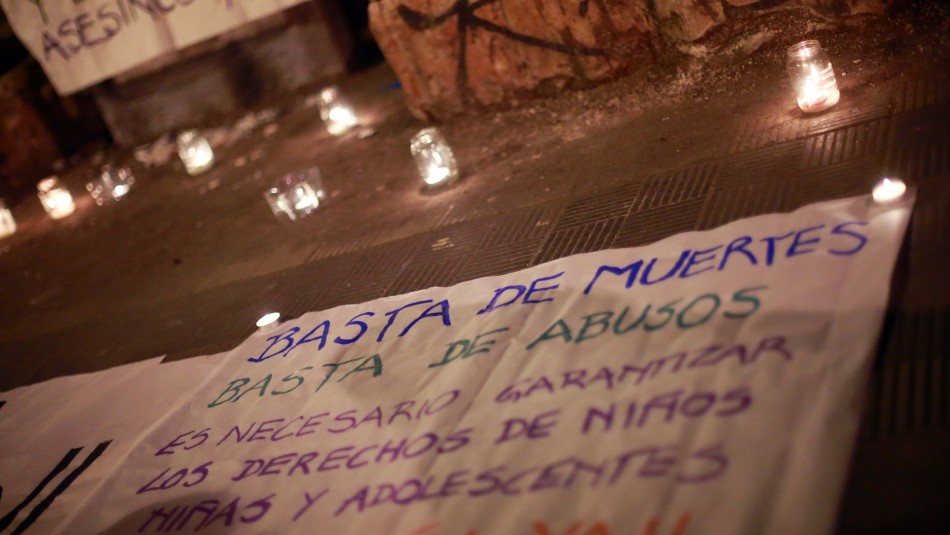 BASTA DE MUERTES
BASTA DE ABUSOS
ES NECESARIO GARANTIZAR
LOS DERECHOS DE NIÑOS
NIÑAS Y ADOLESCENTES